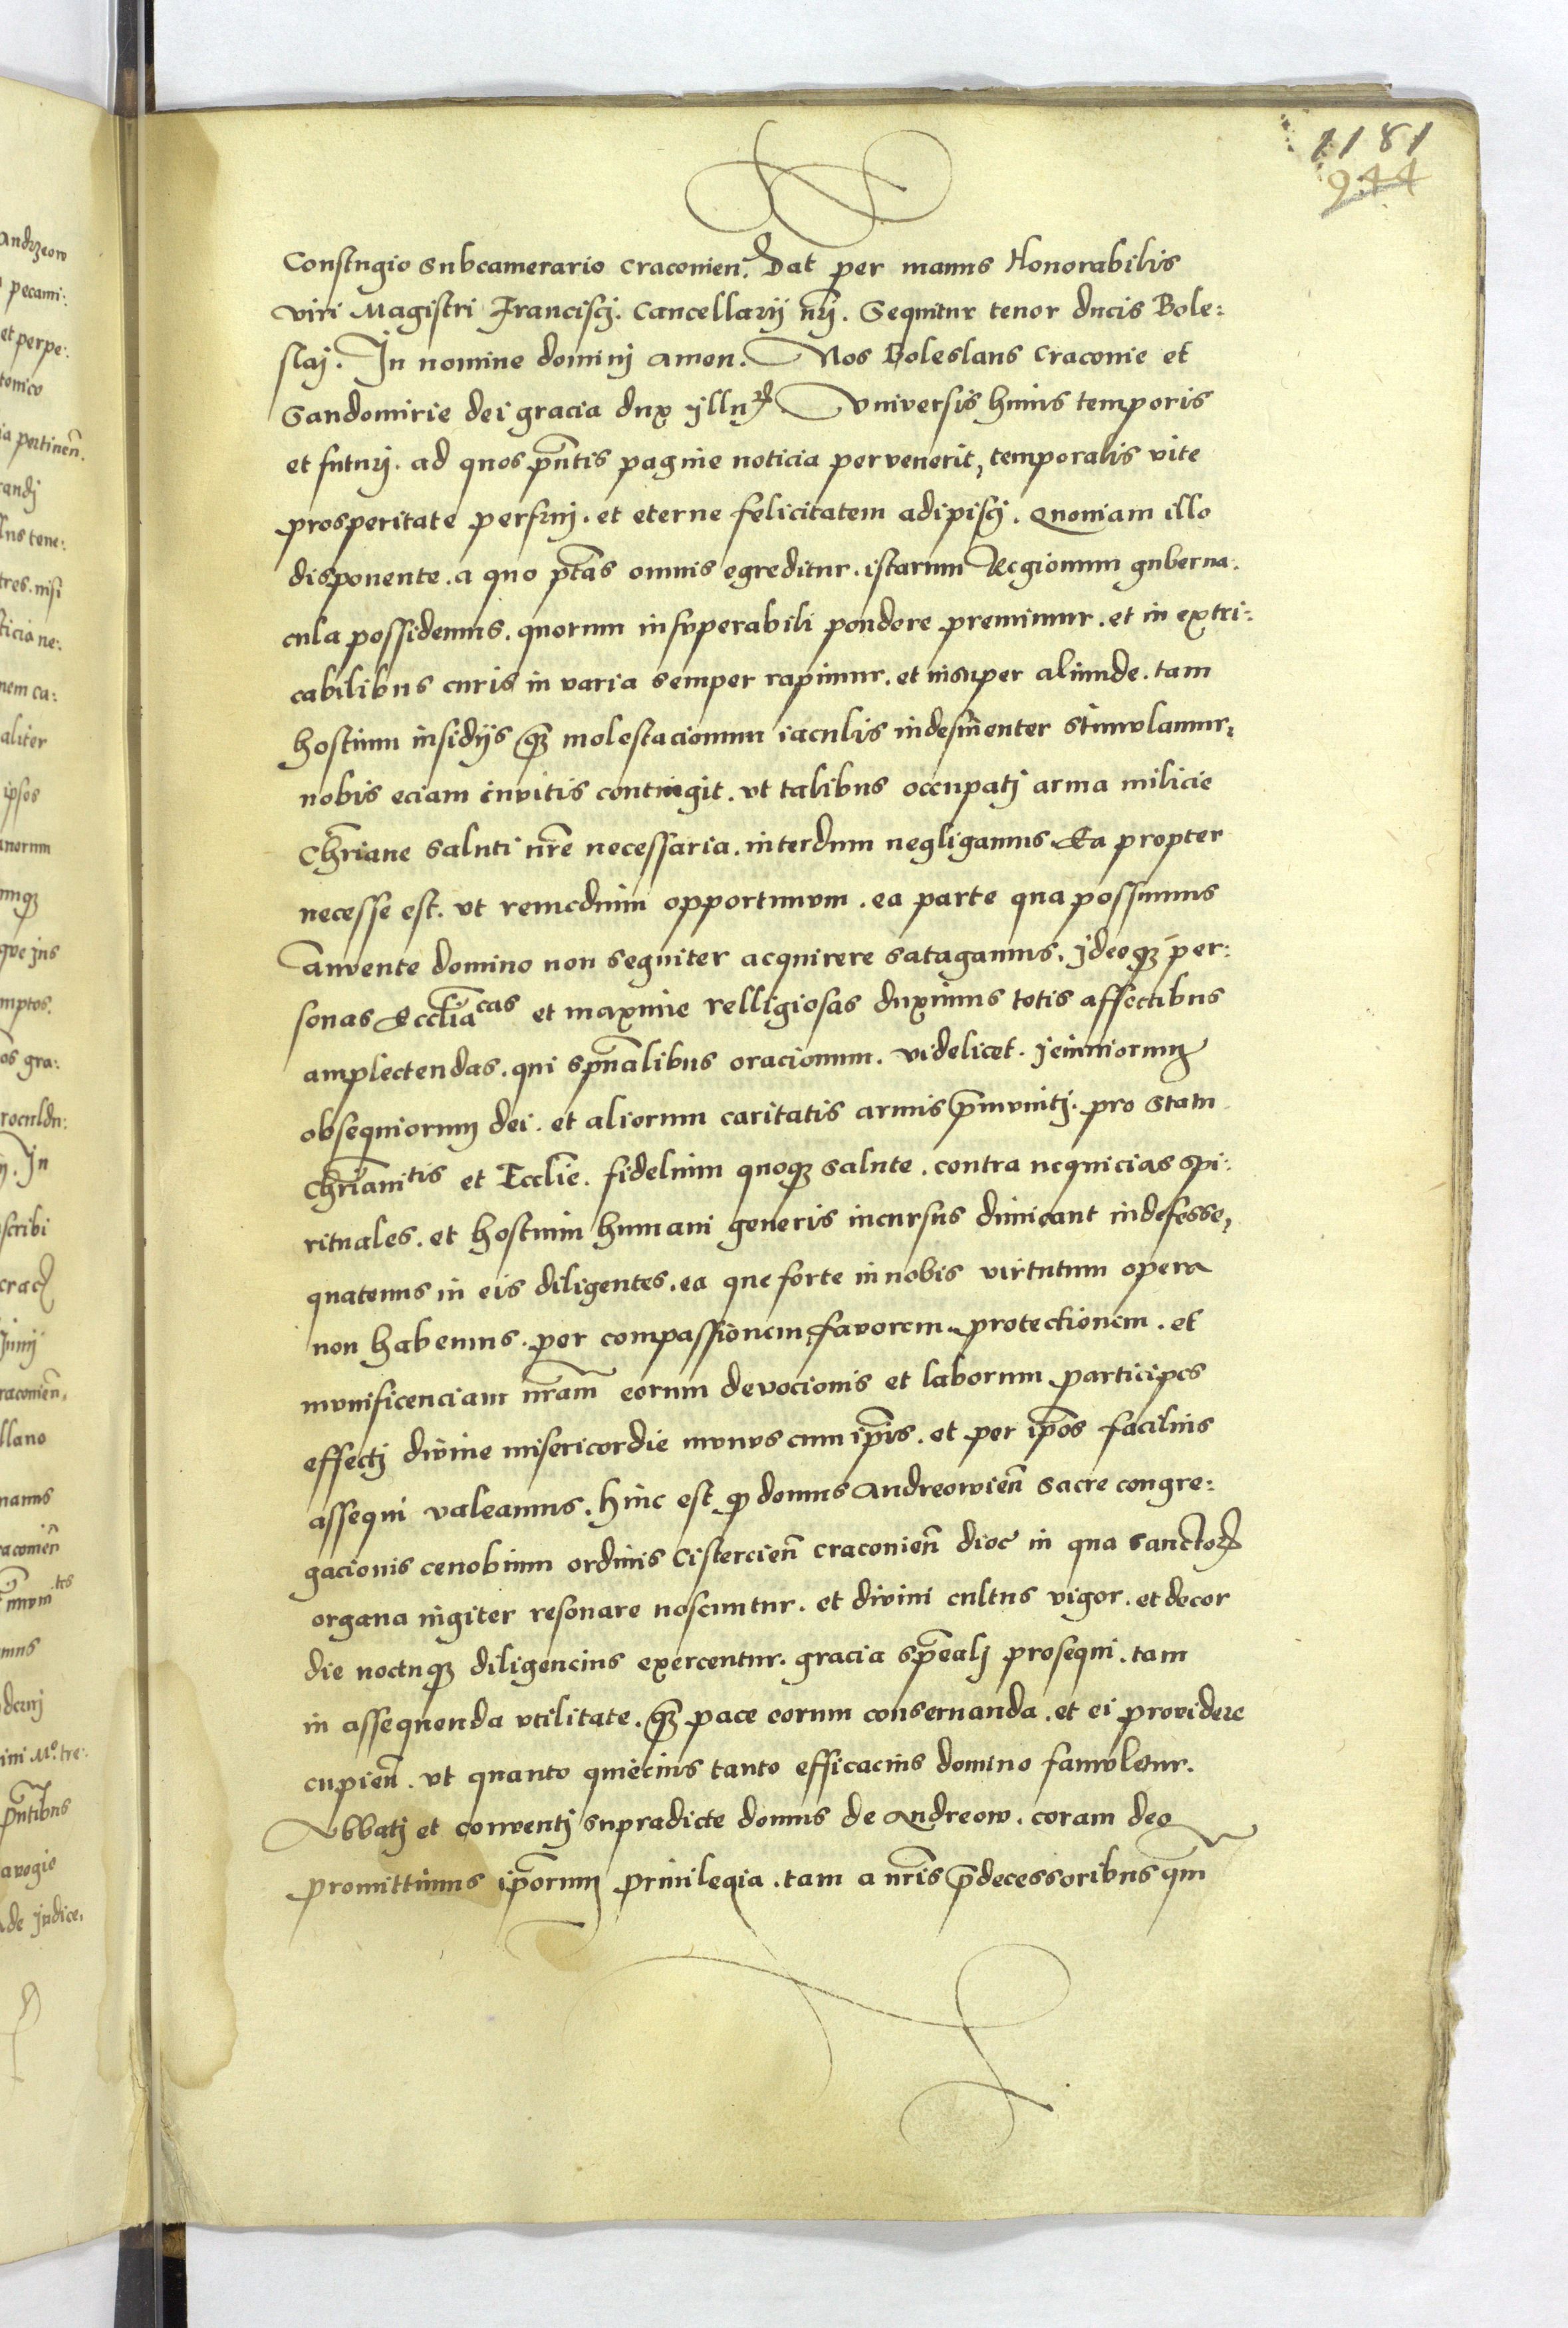 1181
944
Constngio Subcamerario Cracovien̄. Dat per manus Honorabilis
viri Magistri Franciscj. Cancellarij nrj. Sequitur tenor ducis Bole:
slaj. In nomine dominj amen. Nos Boleslaus Cracovie et
Sandomirie dei gracia dux
Universis huius temporis
et futurj. ad quos pn̄tis pagine noticia pervenerit, temporalis vite
prosperitate perfruj. et eterne felicitatem adipiscj. Quoniam illo
disponente. a quo ptās omnis egreditur. istarum Regionum guberna:
cula possidemus. quorum insuperabili pondere premimur. et in extri:
cabilibus curis in varia semper rapimur. et insuper aliunde. tam
hostium insidijs qȝ molestacionum iaculis indesinenter stimulamur,
nobis eciam invitis contingit. vt talibus occupatj arma milicie
Chrīane saluti nrē necessaria. interdum negligamus. Ea propter
necesse est. vt remedium opportunum. ea parte qua possumus
annuente domino non segniter acquirere satagamus. Jdeoqȝ per:
sonas Eccliācas et maxime relligiosas duximus totis affectibus
amplectendas. qui spūalibus oracionum. videlicet. Jeiuniorumqȝ
obsequiorum dei. et aliorum caritatis armis p̄munitj. pro statu
Chrīanitis et Ecclīe. fidelium quoqȝ salute. contra nequicias spi:
rituales. et hostium humani generis incursus dimicant indefesse,
quatenus in eis diligentes. ea que forte in nobis virtutum opera
non habemus. per compassionem, favorem protectionem. et
munificenciam nrām eorum devocionis et laborum participes
effectj divine misericordie munus cum ipīs. et per ipōs facilius
assequi valeamus. hinc est qȝ domus Andreowien̄ sacre congre:
gacionis cenobium ordinis Cistercien̄ Cracovien̄ dioc in qua sanctoꝝ
organa iugiter resonare noscuntur. et divini cultus vigor. et decor
die noctuqȝ diligencius exercentur. gracia spēcalj prosequi. tam
in assequenda vtilitate. qȝ pace eorum conservanda. et ei providere
cupien̄. vt quanto quiecius tanto efficacius domino famuletur.
Abbatj et conventj supradicte domus de Andreow. coram deo
promittimus ipōrum privilegia. tam a nrīs p̄decessoribus qm̄